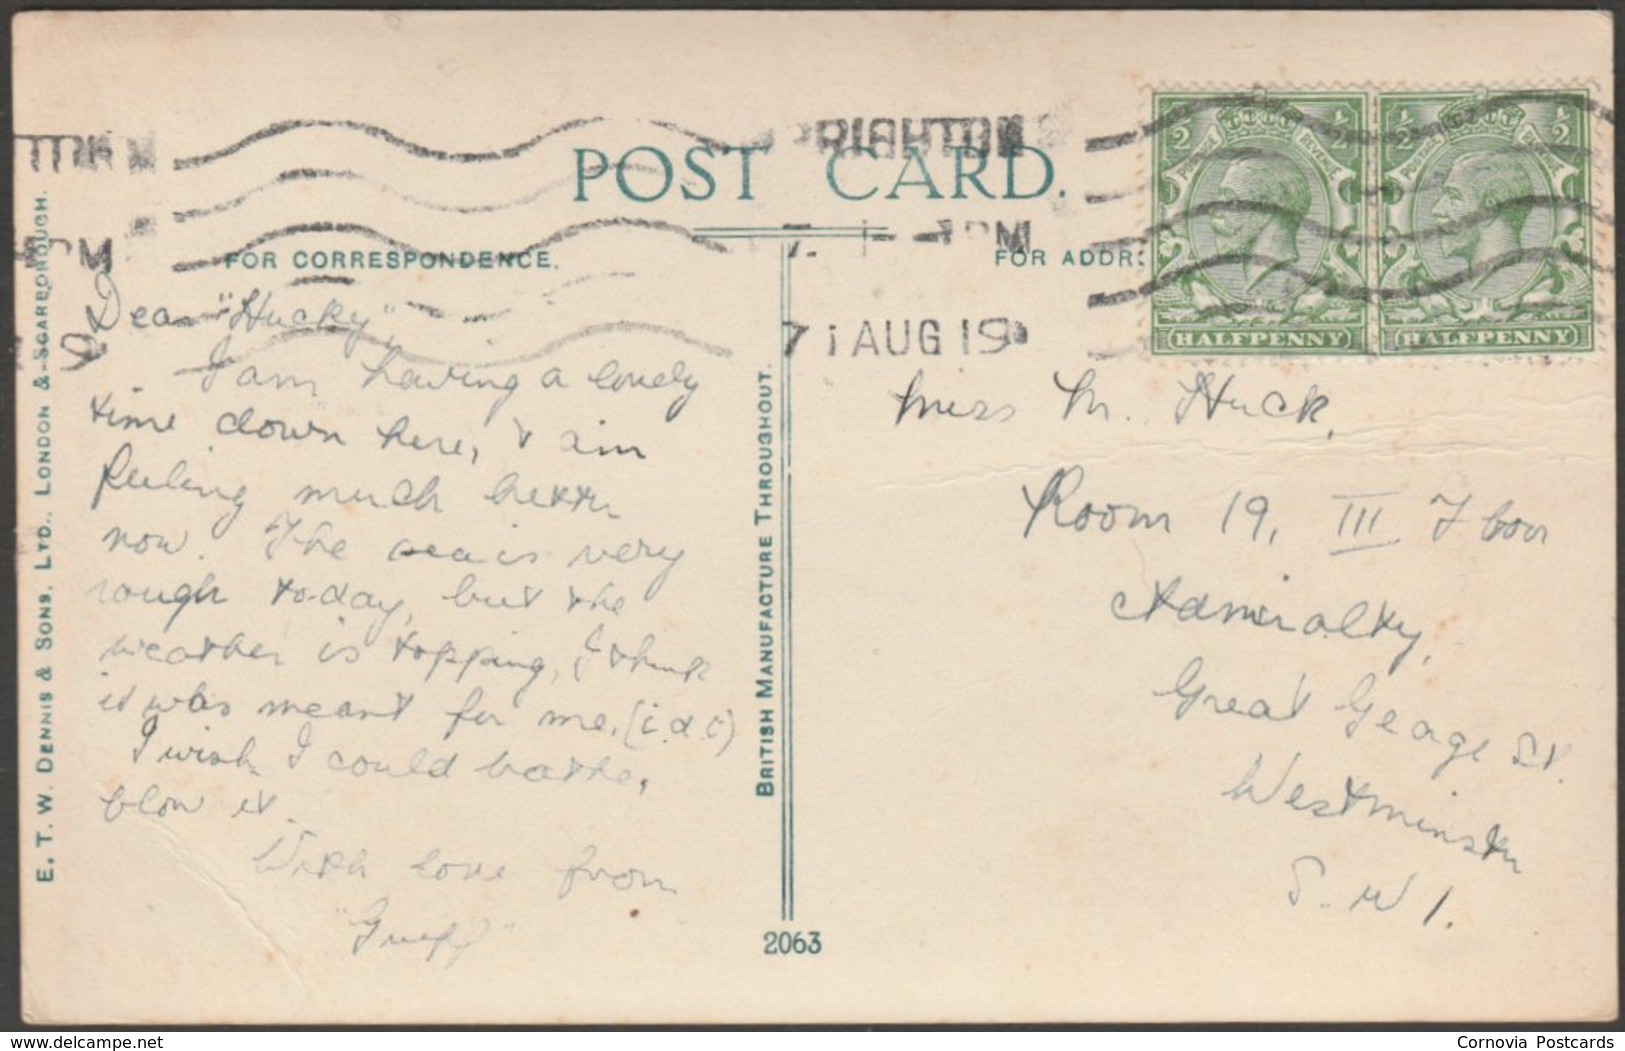 POST CARD.
BRIGHTON
PM
7 1 AUG 19
FOR CORRESPONDENCE.
FOR ADDR
1/2 POSTAGE REVENUE 1/2
HALFPENNY
1/2 POSTAGE REVENUE 1/2
HALFPENNY
Dear "Hucky",
I am having a lovely
time down here, & am
feeling much better
now. The sea is very
rough to-day, but the
weather is topping, I think
it was meant for me, (i.d.t)
I wish I could bathe,
blow it.
With love from
Miss M. Huck,
Room 19, III Floor
Admiralty,
Great George St.
Westminster
S. W 1.
E. T. W. DENNIS & SONS, LTD., LONDON & SCARBOROUGH.
BRITISH MANUFACTURE THROUGHOUT.
2063
www.delcampe.net
Cornovia Postcards